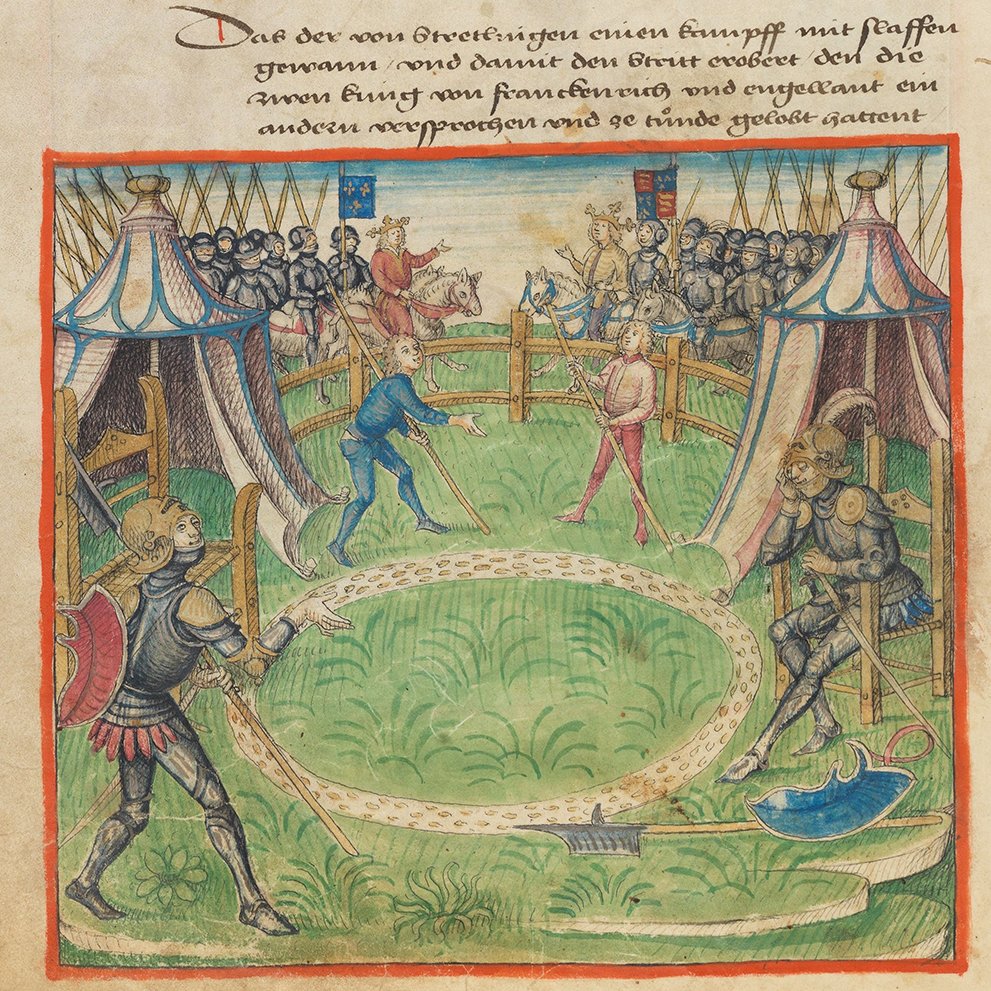 Das der von Stretlingen einen kampff mit slaffen
gewann / vnd damit den Stritt erobert / den die
zwen kung von franckenrich vnd engellant ein
andern versprochen vnd ze tůnde gelobt hattent